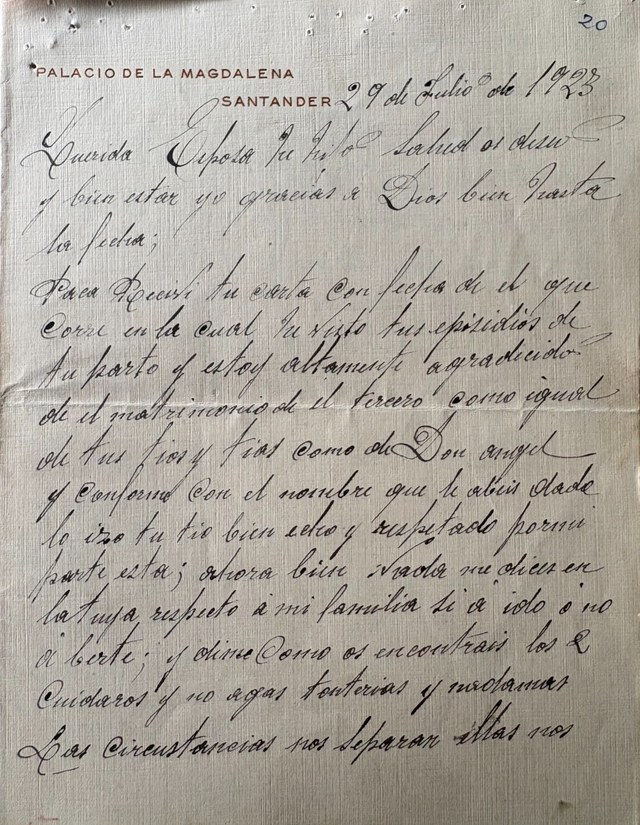 20
PALACIO DE LA MAGDALENA
SANTANDER 29 de Julio de 1923
Querida Esposa tu hijo Salud os deseo
y bien estar yo gracias a Dios bien hasta
la fecha;
Paca Recivi tu carta con fecha de el que
Corre en la cual he visto tus episidios de
tu parto y estoy altamente agradicido
de el matrimonio de el tercero como igual
de tus tios y tias como de Don angel
y Conforme con el nombre que le abeis dado
lo izo tu tio bien echo y respetado por mi
parte esta; ahora bien Nada me dices en
la tuya respecto á mi familia si á ido ó no
á berte; y dime Como os encontrais los 2
Cuidaros y no agas tonterias y nadamas
Las Circustancias nos separan ellas nos